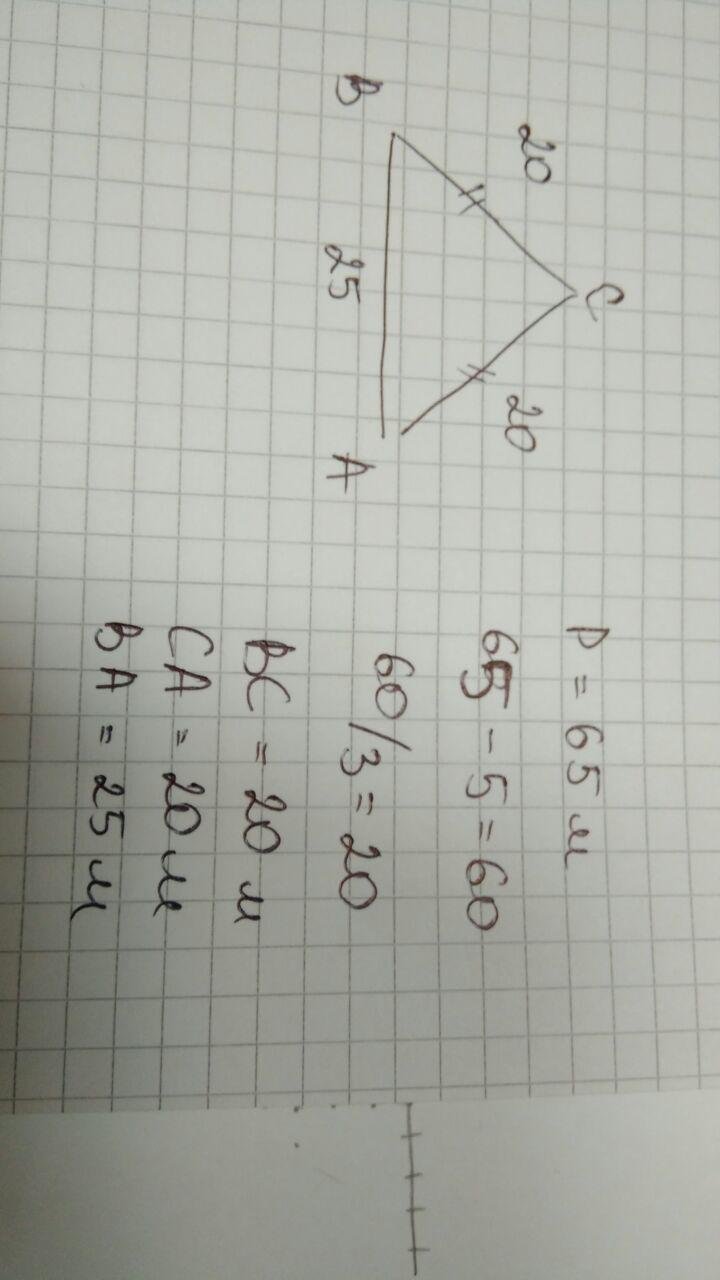 C
20
20
B
25
A
P = 65 м
65 - 5 = 60
60/3 = 20
BC = 20 м
CA = 20 м
BA = 25 м